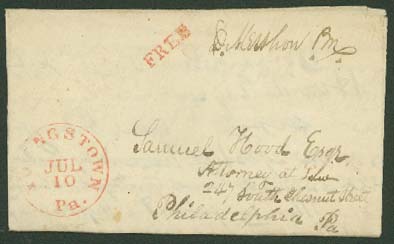 FREE
P.M.
YOUNGSTOWN
JUL
10
Pa.
Samuel Hood Esqr
Attorney at Law
247 South Chesnut Street
Philadelphia Pa